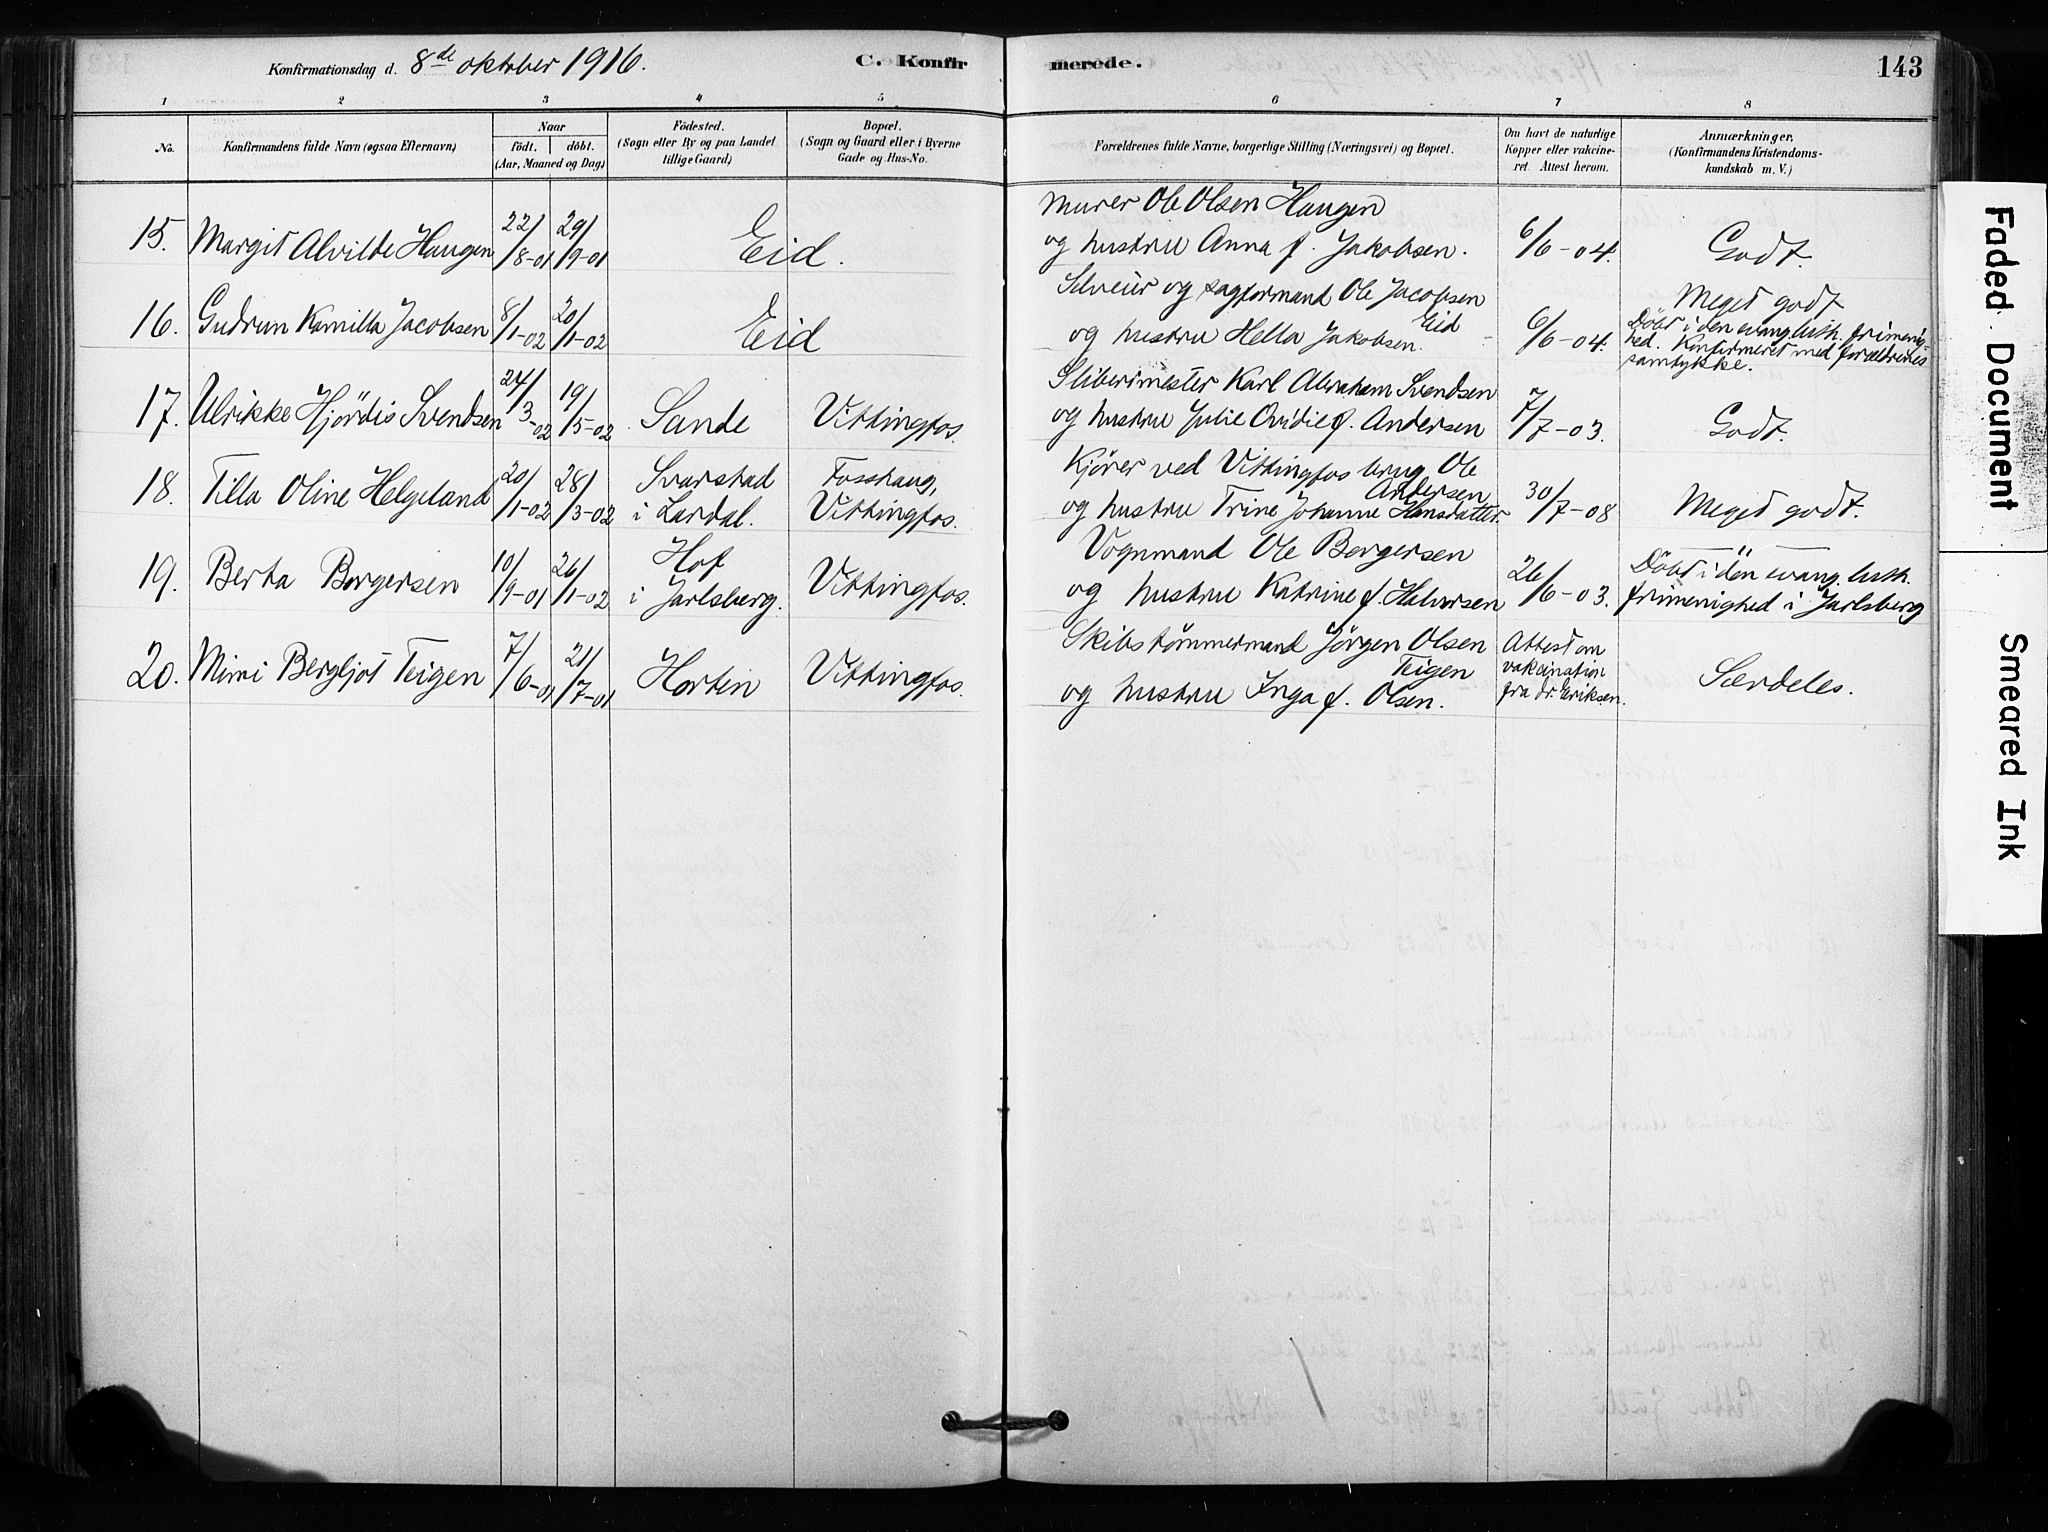 Konfirmationsdag d. 8de oktober 1916. C. Konfirmerede. 143
1 2 3 4 5 6 7 8
No.
Konfirmandens fulde Navn (ogsaa Efternavn)
Naar
födt. döbt.
(Aar, Maaned og Dag)
Födested.
(Sogn eller By og paa Landet
tillige Gaard)
Bopæl.
(Sogn og Gaard eller i Byerne
Gade og Hus-No.
Forældrenes fulde Navne, borgerlige Stilling (Næringsvei) og Bopæl.
Om havt de naturlige
Kopper eller vakcine-
ret. Attest herom.
Anmærkninger.
(Konfirmandens Kristendoms-
kundskab m. V.)
15. Margit Alvilde Haugen 22/8-01 29/9-01 Eid.
Murer Ole Olsen Haugen
og hustru Anna f. Jakobsen. 6/6-04. Godt.
16. Gudrun Kamilla Jacobsen 8/1-02 20/1-02 Eid
Selveier og sagformand Ole Jacobsen
Eid
og hustru Hella Jakobsen. 6/6-04.
Meget godt
Döbt i den evang. luth. frimenig-
hed. Konfirmeret med forældrenes
samtykke.
17. Ulrikke Hjördis Svendsen 24/3-02 19/5-02 Sande Vittingfos.
Sliberimester Karl Abraham Svendsen
og hustru Julie Ovidie f. Andersen 7/7-03. Godt.
18. Tilla Oline Helgeland 20/1-02 28/3-02
Svarstad
i Lardal.
Fosshaug,
Vittingfos.
Kjörer ved Vittingfos brug Ole
Andersen
og hustru Trine Johanne Hansdatter. 30/7-08 Meget godt.
19. Berta Borgersen 10/9-01 26/1-02
Hof
i Jarlsberg.
Vittingfos.
Vognmand Ole Borgersen
og hustru Katrine f. Halvorsen 26/6-03.
Döbt i den evang. luth.
frimenighed i Jarlsberg
20. Mimi Bergljot Teigen 7/6-01 21/7-01 Horten Vittingfos.
Skibstømmermand Jörgen Olsen
Teigen
og hustru Inga f. Olsen.
Attest om
vakcination
fra dr. Eriksen.
Særdeles.
Faded Document
Smeared Ink